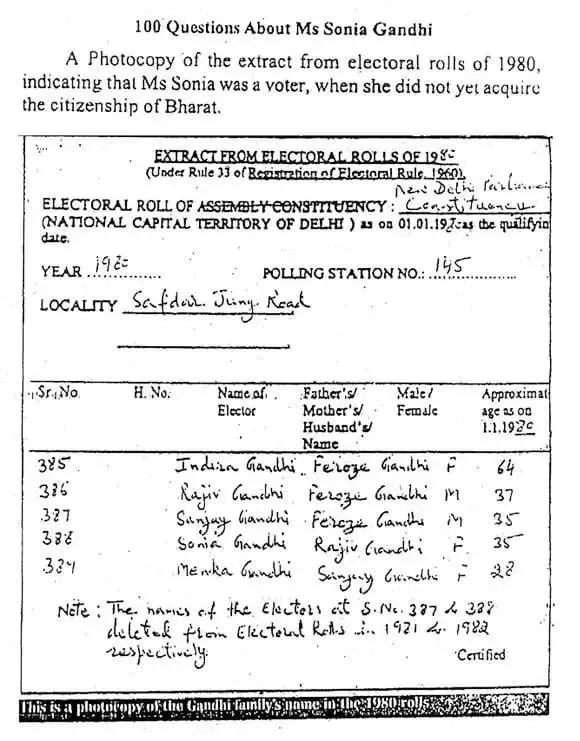 100 Questions About Ms Sonia Gandhi
A Photocopy of the extract from electoral rolls of 1980,
indicating that Ms Sonia was a voter, when she did not yet acquire
the citizenship of Bharat.
EXTRACT FROM ELECTORAL ROLLS OF 1980
(Under Rule 33 of Registration of Electoral Rule, 1960)
New Delhi Parliamen
ELECTORAL ROLL OF ASSEMBLY CONSTITUENCY : Constituency
(NATIONAL CAPITAL TERRITORY OF DELHI ) as on 01.01.19 as the qualifyin
date.
YEAR 1980 POLLING STATION NO.: 145
LOCALITY Safdar Jung Road
Sr. No. H. No. Name of Father's/ Male/ Approximat
Elector Mother's/ Female age as on
Husband's/ 1.1.1980
Name
385 Indira Gandhi Feroze Gandhi F 64
386 Rajiv Gandhi Feroze Gandhi M 37
387 Sanjay Gandhi Feroze Gandhi M 35
388 Sonia Gandhi Rajiv Gandhi F 35
389 Menka Gandhi Sanjay Gandhi F 28
Note : The names of the Electors at S.No. 387 & 388
deleted from Electoral Rolls in 1981 & 1982
respectively.
Certified
This is a photocopy of the Gandhi family's name in the 1980 rolls